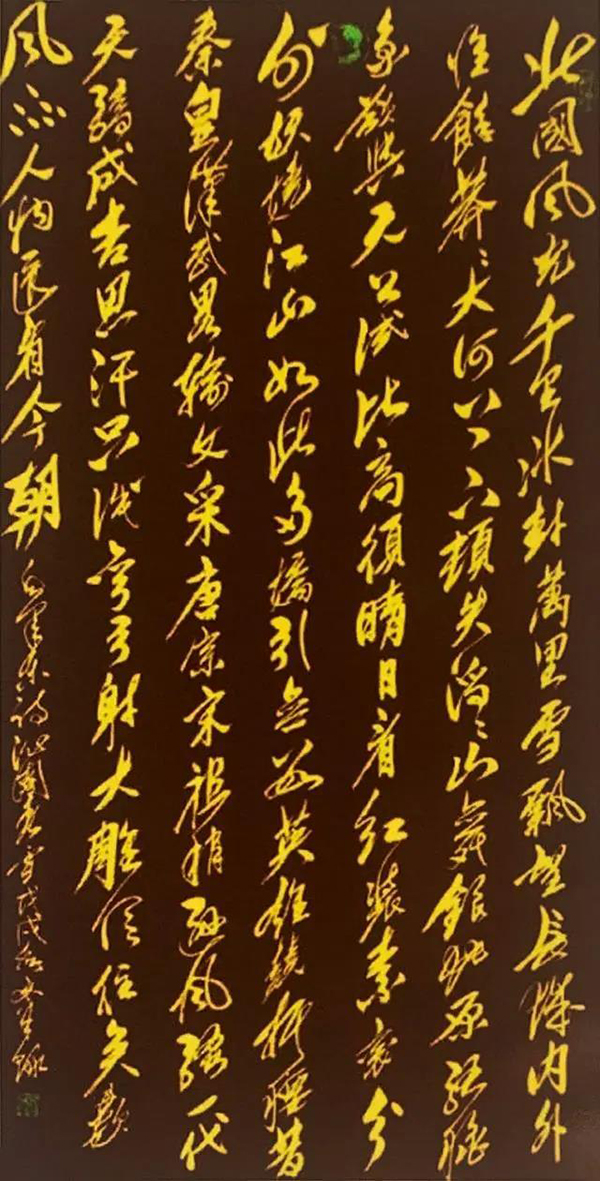 北國風光千里冰封萬里雪飄望長城內外
惟餘莽々大河上下頓失滔々山舞銀蛇原馳蠟
象欲與天公試比高須晴日看紅裝素裹分
外妖嬈江山如此多嬌引無數英雄競折腰惜
秦皇漢武略輸文采唐宗宋祖稍遜風騷一代
天驕成吉思汗只識彎弓射大雕俱往矣數
風流人物還看今朝 毛澤東詩沁園春雪戊戌